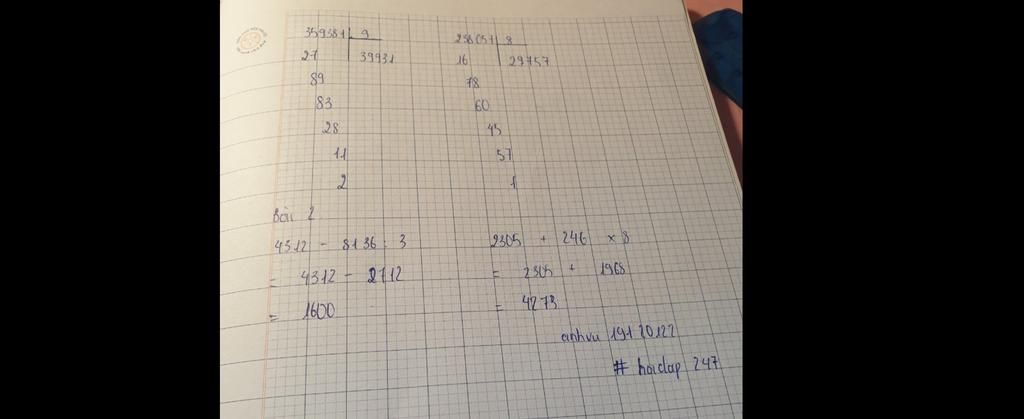 359381 9 238057 8
27 39931 16 29757
89 78
83 60
28 45
11 57
2 1
Bài 2
4312 - 8136 : 3 2305 + 246 x 8
= 4312 - 2712 = 2305 + 1968
= 1600 = 4273
anhvu 19120122
# hoidap 247